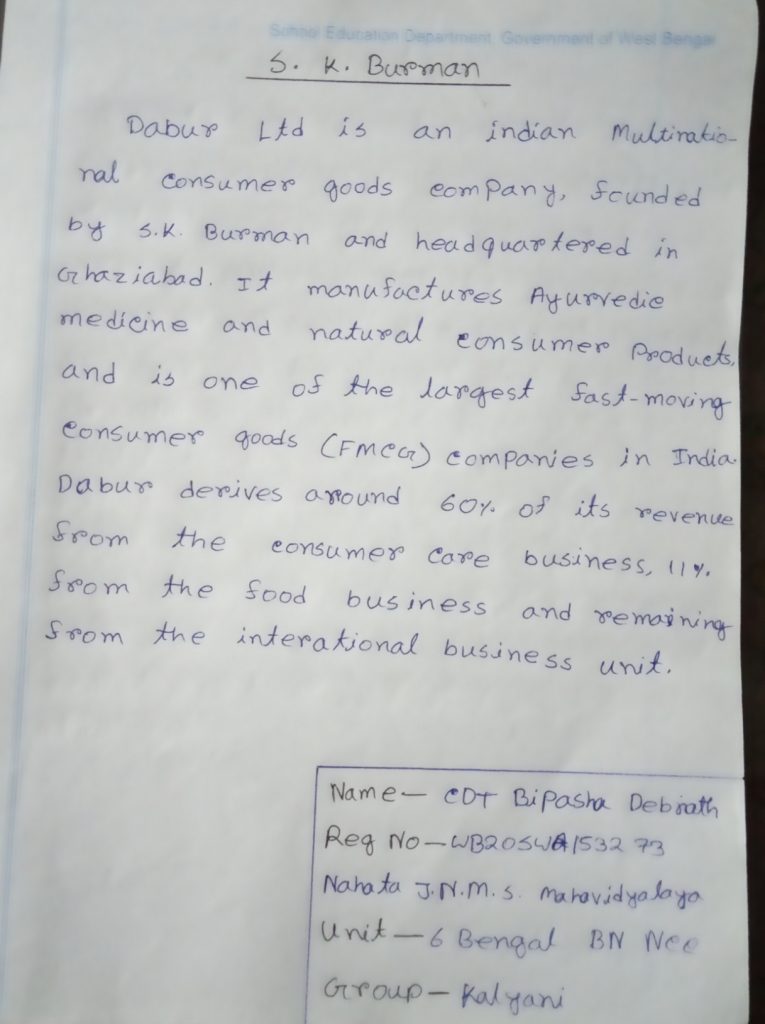 School Education Department, Government of West Bengal
S. K. Burman
Dabur Ltd is an indian Multinatio-
nal consumer goods company, founded
by S.K. Burman and headquartered in
Ghaziabad. It manufactures Ayurvedic
medicine and natural consumer Products,
and is one of the largest fast-moving
consumer goods (FMCG) companies in India.
Dabur derives around 60% of its revenue
from the consumer care business, 11%
from the food business and remaining
from the interational business unit.
Name - CDT Bipasha Debnath
Reg No - WB20SWA153273
Nahata J.N.M.S. Mahavidyalaya
Unit - 6 Bengal BN Ncc
Group - Kalyani